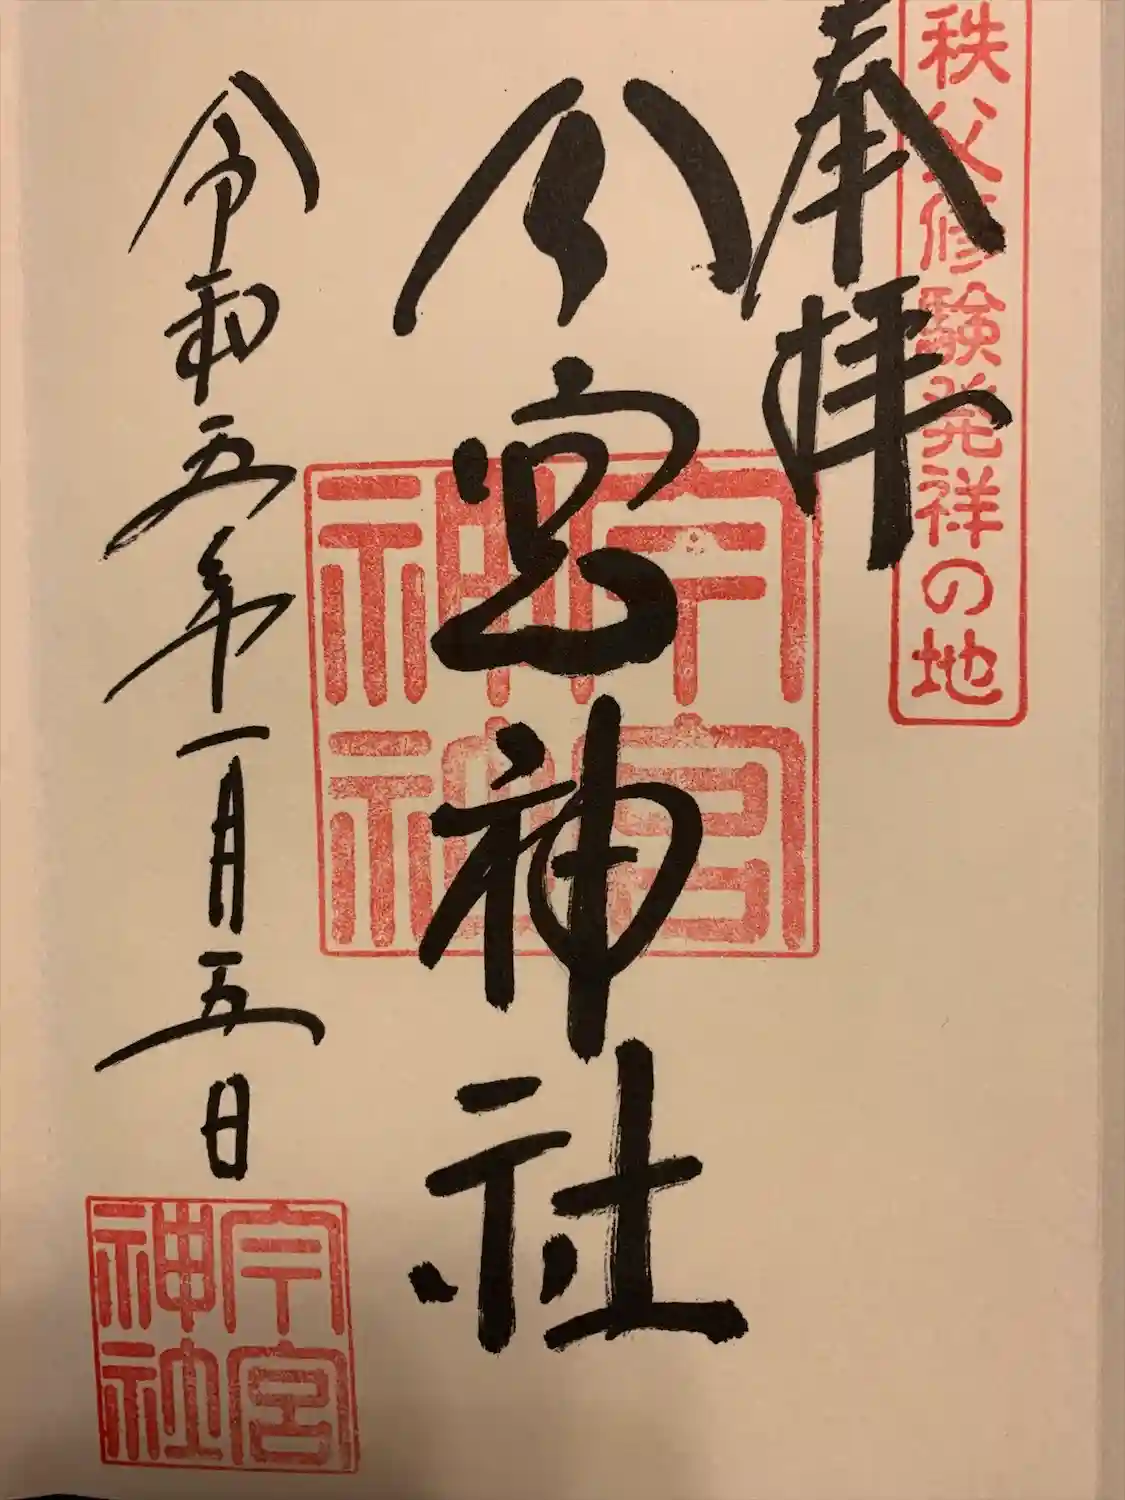 秩父修験発祥の地
奉拝
今宮神社
今宮神社
令和五年一月五日
今宮神社